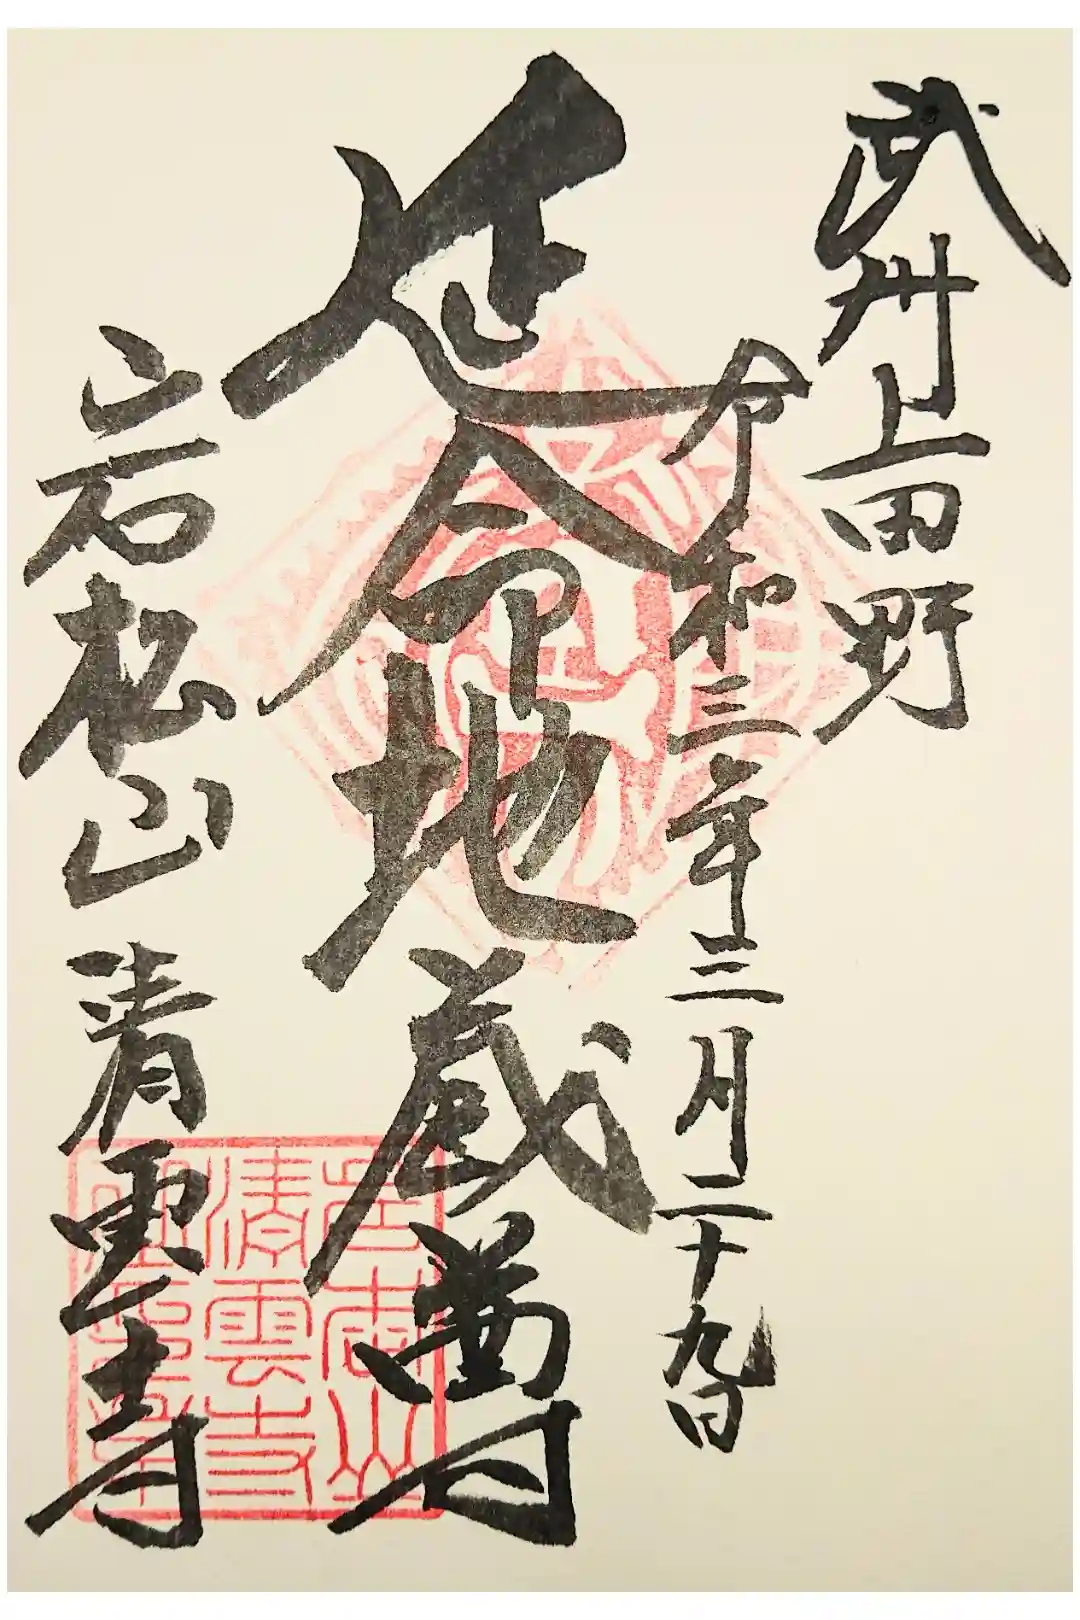 武州上田野
令和三年三月二十九日
延命地蔵尊
岩松山 清雲寺
清雲寺